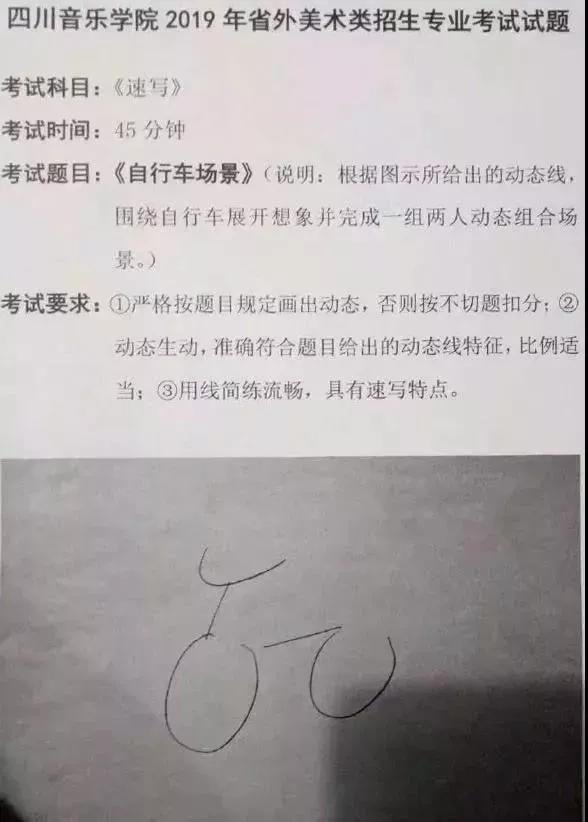 四川音乐学院 2019 年省外美术类招生专业考试试题
考试科目：《速写》
考试时间：45 分钟
考试题目：《自行车场景》（说明：根据图示所给出的动态线，
围绕自行车展开想象并完成一组两人动态组合场
景。）
考试要求：①严格按题目规定画出动态，否则按不切题扣分；②
动态生动，准确符合题目给出的动态线特征，比例适
当；③用线简练流畅，具有速写特点。